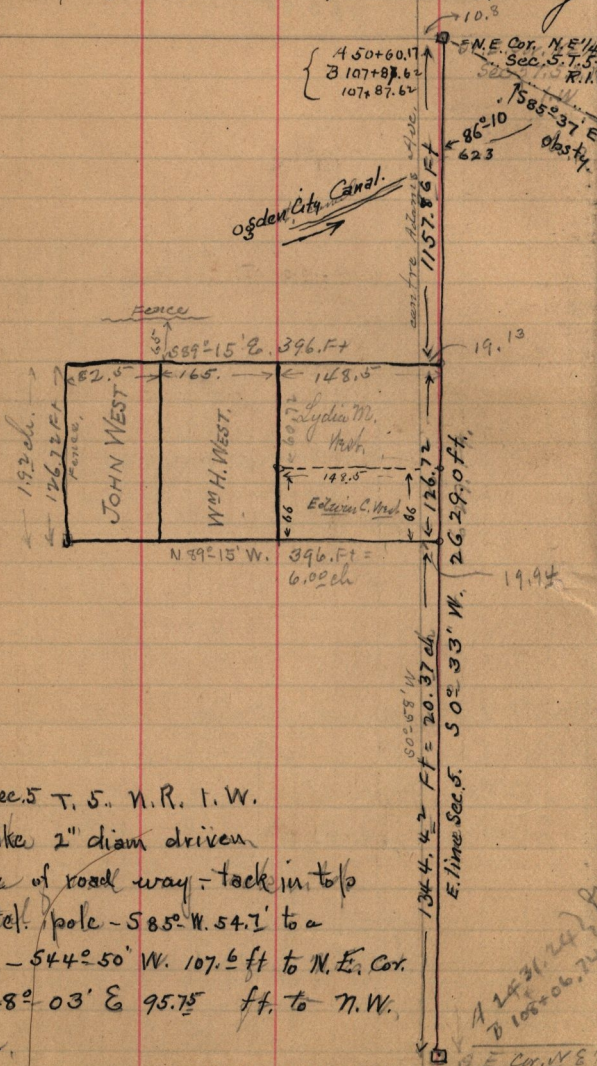 10.8
A 50+60.17
B 107+87.62
107+87.62
N.E. Cor. N.E.1/4
Sec. 5. T. 5-
R.1.
W.
S85°-37' E
obs.ty.
86°-10
623
Ogden City Canal.
centre Adams Ave.
1157.86 Ft
Fence
65'
S89°-15' E. 396.Ft
19.13
82.5
165.
148.5
1.92 ch.
126.72 Ft
Fence,
JOHN WEST
Wm H. WEST.
60.72
Lydia M.
West.
148.5
66
Edwin C. West
66
126.72
N 89°-15' W.
396.Ft =
6.00 ch
19.94
E. line Sec. 5. S 0°-33' W. 2629.0 ft.
S0°-58' W
1344.42 Ft = 20.37 ch
ec. 5 T. 5. N.R. 1. W.
ke 2" diam driven
of road way - tack in top
tel. pole - S 85°-W. 54.7' to a
- S44°-50' W. 107.6 ft to N.E. Cor.
8°-03' E 95.75 ft. to N.W.
A 2431.24
B 108+06.72
Cor. N E